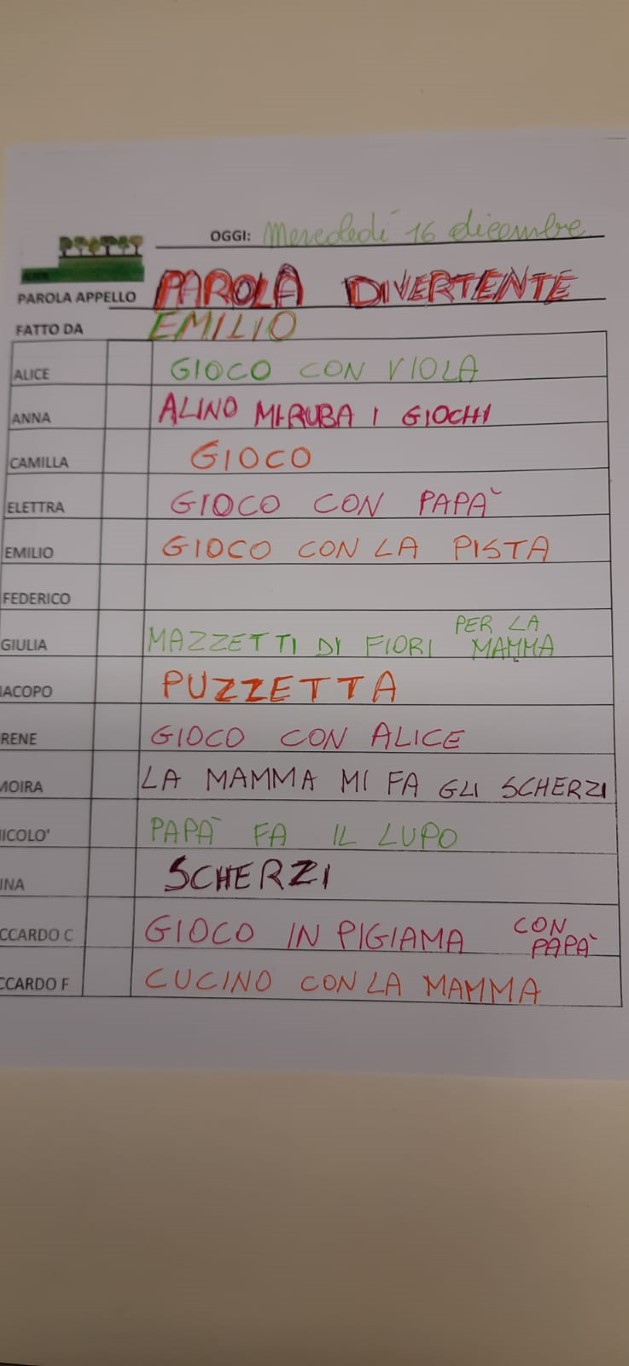 OGGI: Mercoledì 16 dicembre
PAROLA APPELLO PAROLA DIVERTENTE
FATTO DA EMILIO
ALICE GIOCO CON VIOLA
ANNA ALINO MI RUBA I GIOCHI
CAMILLA GIOCO
ELETTRA GIOCO CON PAPÀ
EMILIO GIOCO CON LA PISTA
FEDERICO
GIULIA MAZZETTI DI FIORI PER LA MAMMA
IACOPO PUZZETTA
RENE GIOCO CON ALICE
MOIRA LA MAMMA MI FA GLI SCHERZI
NICOLO' PAPÀ FA IL LUPO
INA SCHERZI
CCARDO C GIOCO IN PIGIAMA CON PAPÀ
CCARDO F CUCINO CON LA MAMMA